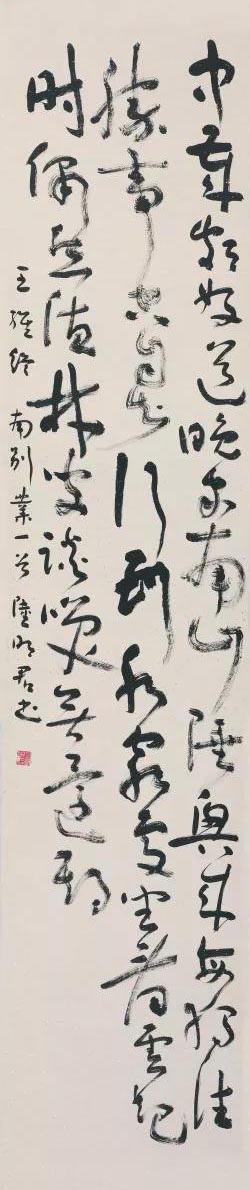 中歲頗好道晚家南山陲興來每獨往
勝事空自知行到水窮處坐看雲起
时偶然值林叟談笑無還期
王維終南别業一首 陸明君书